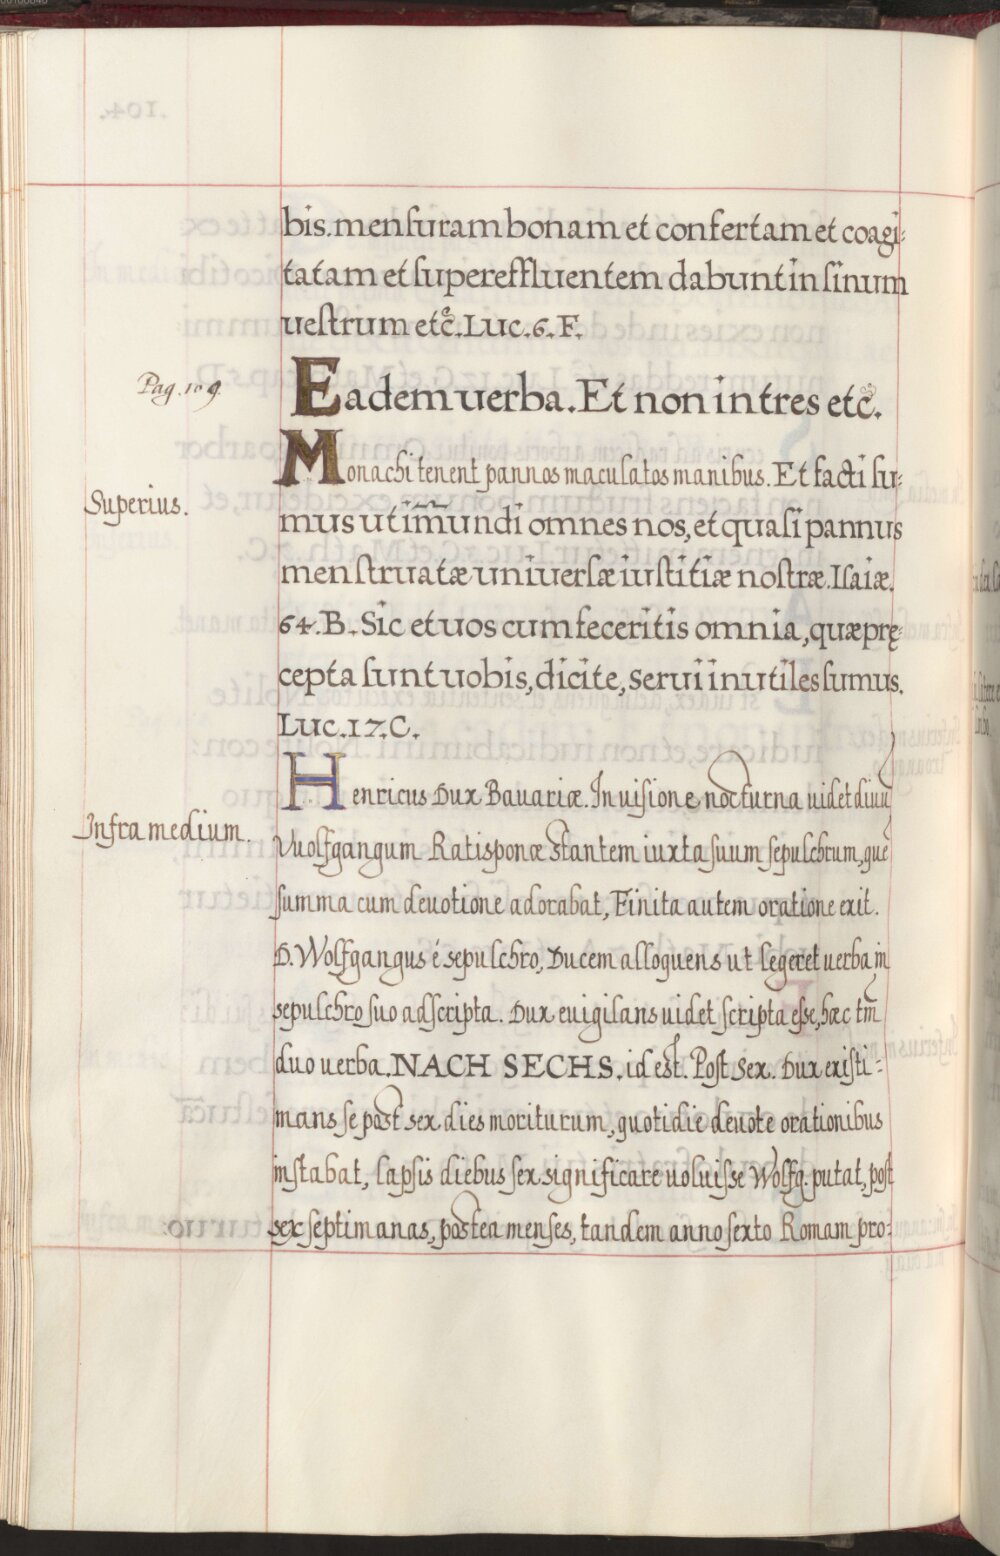 bis. menſuram bonam et confertam et coagi:
tatam et ſupereffluentem dabunt in ſinum
ueſtrum etc̃. Luc. 6. F.
Pag. 109.
Eadem uerba. Et non intres etc̃.
Monachi tenent pannos maculatos manibus. Et facti ſu:
Superius.
mus ut im̃undi omnes nos, et quaſi pannus
menſtruatæ uniuerſæ iuſtitiæ noſtræ. Iſaiæ.
64. B. Sic et uos cum feceritis omnia, quæ prę:
cepta ſunt uobis, dicite, serui inutiles ſumus.
Luc. 17. C.
Henricus Dux Bauariæ. In uiſione nocturna uidet diuũ
Infra medium.
Vuolfgangum Ratisponæ stantem iuxta ſuum ſepulchrum, quẽ
ſumma cum deuotione adorabat, Finita autem oratione exit.
D. Wolfgangus é sepulchro, Ducem alloquens ut legeret uerba in
sepulchro ſuo adſcripta. Dux euigilans uidet ſcripta eſſe, hæc tm̃
duo uerba. NACH SECHS. id est. Poſt sex. Dux exiſti-:
mans ſe post sex dies moriturum, quotidie deuote orationibus
inſtabat, lapſis diebus ſex significare uoluiſse Wolfg. putat, poſt
sex ſeptimanas, postea menſes, tandem anno ſexto Romam pro: